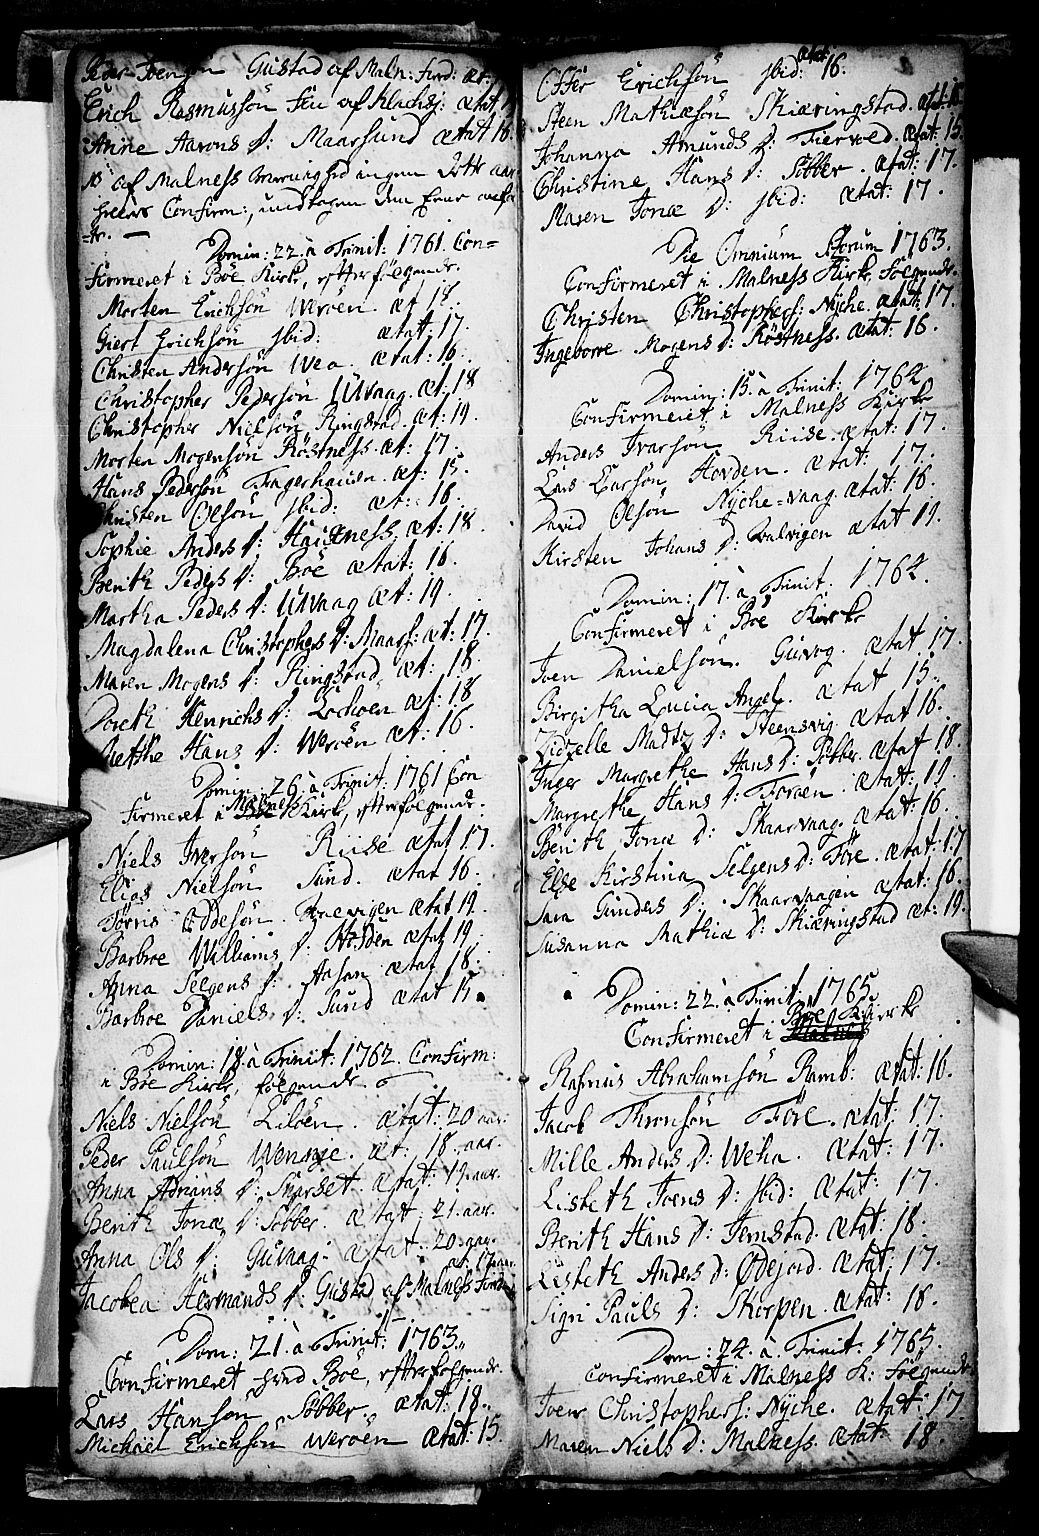 Peder Joensen Gustad af Maln: fierd: æt:
Erich Rasmussön Siu af Klachsj: ætat 1
Anne Aarons D: Maarsund ætat 16
af Malness ingen dette aar
Confirm:, undtagen den Eene
Domin: 22. à Trinit: 1761. Con=
firmeret i Böe Kirke, efterfölgende.
Morten Erichsön Weröen. æt 18.
Giert Erichsön jbid: ætat: 17.
Christen Andersön Wea. ætat: 16.
Christopher Pedersön Utvaag. æt: 18
Christopher Nielsön Ringstad. æt: 19.
Morten Mogensön Röstness. æt: 17.
Hans Pedersön Fagerhauen. æt: 15.
Christen Olsön jbid: æt: 16.
Sophie Anders D: Hauxness. æt: 18.
Berith Peders D: Böe ætat: 16.
Martha Peders D: Utvaag æt: 19.
Magdalena Christophers D: Maars: æt: 17.
Maren Mogens D: Ringstad, æt: 18.
Doreth Henrichs D: æt: 18
Hans D: Weröen æt: 16.
Domin: 26. à Trinit: 1761 Con
firmeret i Malness Kirk, efterfölgende.
Niels Iversön Riise ætat 17.
Elias Nielsön Sund. ætat 16.
Torris Oddesön. ætat 19.
Barbroe Williams D: Hofden ætat 19.
Anna Selgens D. Aasan ætat 18.
Barbroe Daniels D: Sund ætat 15.
Domin: 18. à Trinit: 1762. Confirm:
i Böe Kirke, fölgende
Niels Nielsön Lilöen. ætat: 20 aar.
Peder Paulsön Wennaje. æt: 18. aar.
Anna Adrians D: Skarset. ætat: 19. aar.
Berith Jonæ D: Söbber. ætat: 21. aar.
Anna Ols D: Guvaag: ætat: 20. aar.
æt: 17 aar.
Jacobea Hermands D: Gustad af Malness Fierding
Dom: 21. à Trinit: 1763.
Confirmeret hved Böe, efterfölgende.
Lars Hansön Söbber. ætat: 18.
Michael Erichsön Weröen ætat: 15
Offer Erichsön jbid: ætat: 16.
Steen Mathiæsön Skiæringstad. ætat: 18
Johanna Amunds D: Tiervold. ætat: 15.
Christine Hans D: Söbber. ætat: 17.
Maren Jonæ D: jbid: ætat: 17.
Die Omnium Storum 1763.
Confirmeret i Malness Kirk, Fölgende.
Christen Christophers: Nyche. ætat: 17.
Ingeborre Mogens D: Röstness. ætat: 16.
Domin: 15. à Trinit: 1764
Confirmeret i Malness Kirke
Anders Ivarsön Riise. ætat: 17.
Lars Larsön Hovden. ætat: 17.
David Olsön Nyche=vaag. ætat: 16.
Kirsten Johans D: Qvalvigen ætat 19.
Domin: 17. à Trinit: 1764.
Confirmeret i Böe Kirke
Joen Danielsön. Guvog. ætat 17.
Birgitha Lucia Angel. ætat 15.
Zidzelle Madtz D: Steensvig. ætat 16.
Inger Margrethe Hans D: Söbber. ætat 18.
Margrethe Hans D: Foröen. ætat: 19.
Berith Jonæ D: Skaarvaag. ætat: 16.
Else Kirstina Selgens D: Före. ætat: 17
Sara Gunders D: Skaarvaagen ætat: 16.
Susanna Mathiæ D: Skiæringstad æt: 19.
Domin: 22. à Trinit: 1765.
Confirmeret i Böe Kierke
Rasmus Abrahamsön Ramb: ætat: 16.
Jacob Thronsön Före. ætat: 17.
Mille Anders D: Weha. ætat: 17.
Lisbeth Joens D: jbid: ætat: 17.
Berith Hans D: Jemstad. ætat: 18.
Lisbeth Anders D: Ødejord. ætat: 17.
Sigri Pauls D: Skorpen. ætat: 16.
Dom: 24. à. Trinit. 1765.
Confirmeret i Malness K: Fölgende
Joen Christophers: Nyche. ætat: 17
Maren Niels D: Malness. ætat: 18.